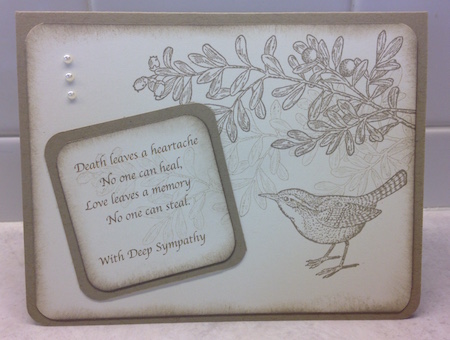 Death leaves a heartache
No one can heal,
Love leaves a memory
No one can steal.
With Deep Sympathy